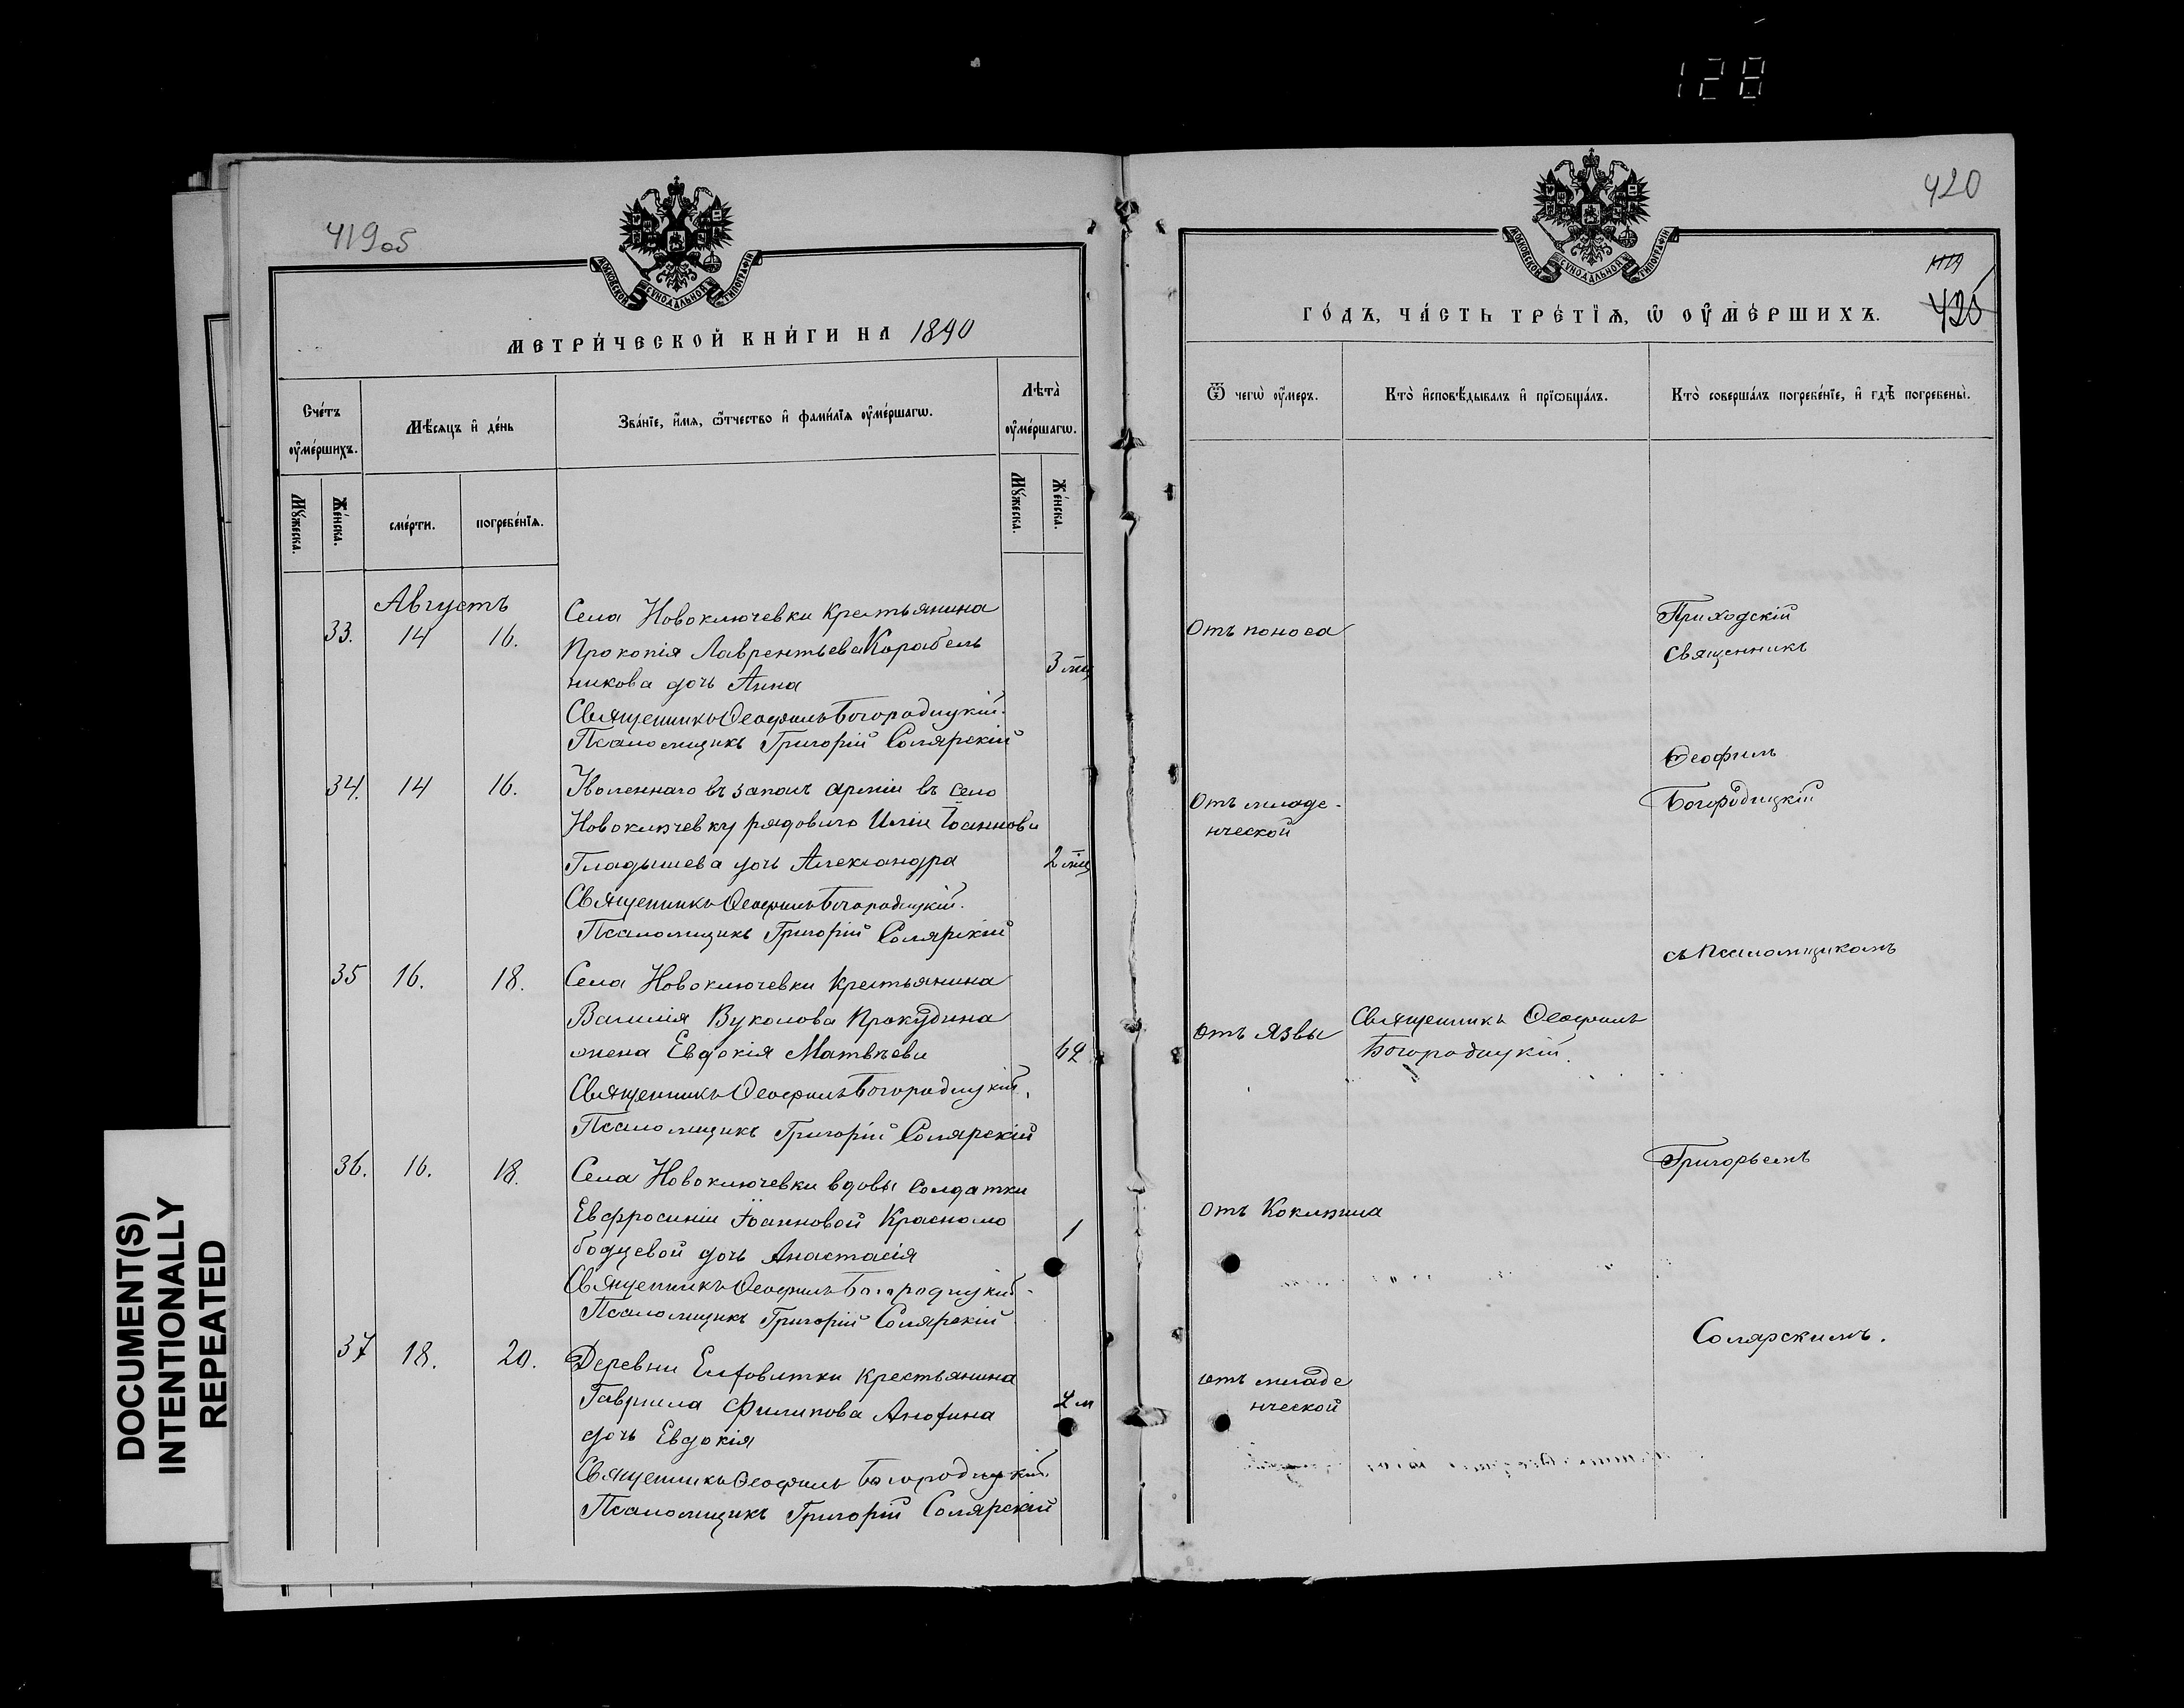 128
419об
МОСКОВСКОЙ СѴНОДАЛЬНОЙ ТИПОГРАФІИ
МЕТРИ́ЧЕСКОЙ КНИ́ГИ НА 1890
Сче́тъ ᲂу҆ме́ршихъ.
Мѣ́сяцъ и҆ де́нь
Зва́нїе, и҆́мя, ѻ҆́тчество и҆ фами́лїя ᲂу҆ме́ршагѡ.
Лѣта̀ ᲂу҆ме́ршагѡ.
Мꙋ́жеска.
Же́нска.
сме́рти.
погребе́нїѧ.
Мꙋ́жеска.
Же́нска.
Августъ
33. 14 16. Села Новоключевки крестьянина
Прокопія Лаврентьева Корабель
никова дочь Анна
3 мц
Священникъ Ѳеофилъ Богородицкій.
Псаломщикъ Григорій Солярскій
34. 14 16. Уволеннаго въ запасъ арміи въ село
Новоключевку рядового Иліи Іоаннова
Гладышева дочь Александра
2 мц
Священникъ Ѳеофилъ Богородицкій.
Псаломщикъ Григорій Солярскій
35 16. 18. Села Новоключевки крестьянина
Василія Вуколова Прокудина
жена Евдокія Матвѣева
Священникъ Ѳеофилъ Богородицкій.
Псаломщикъ Григорій Солярскій
36. 16. 18. Села Новоключевки вдовы солдатки
Евфросиніи Іоанновой Краснощо
бодцевой дочь Анастасія
1
Священникъ Ѳеофилъ Богородицкій.
Псаломщикъ Григорій Солярскій
37 18. 20. Деревни крестьянина
Гавріила Филипова Анофина
дочь Евдокія
Священникъ Ѳеофилъ Богородицкій.
Псаломщикъ Григорій Солярскій
420
МОСКОВСКОЙ СѴНОДАЛЬНОЙ ТИПОГРАФІИ
ГО́ДЪ, ЧА́СТЬ ТРЕ́ТЇѦ, Ѡ҆ ОУ҆МЕ́РШИХЪ.
Ѿ чегѡ̀ ᲂу҆́меръ.
Кто̀ и҆сповѣ́дывалъ и҆ прїѡбща́лъ.
Кто̀ соверша́лъ погребе́нїе, и҆ гдѣ̀ погребены̀.
Отъ поноса
Приходскій
Священникъ
Ѳеофилъ
Отъ младе-
нческой
Богородицкій
съ Псаломщикомъ
отъ язвы
Священникъ Ѳеофилъ
Богородицкій.
Григорьемъ
отъ Коклюша
Солярскимъ.
отъ младе
нческой
DOCUMENT(S)
INTENTIONALLY
REPEATED